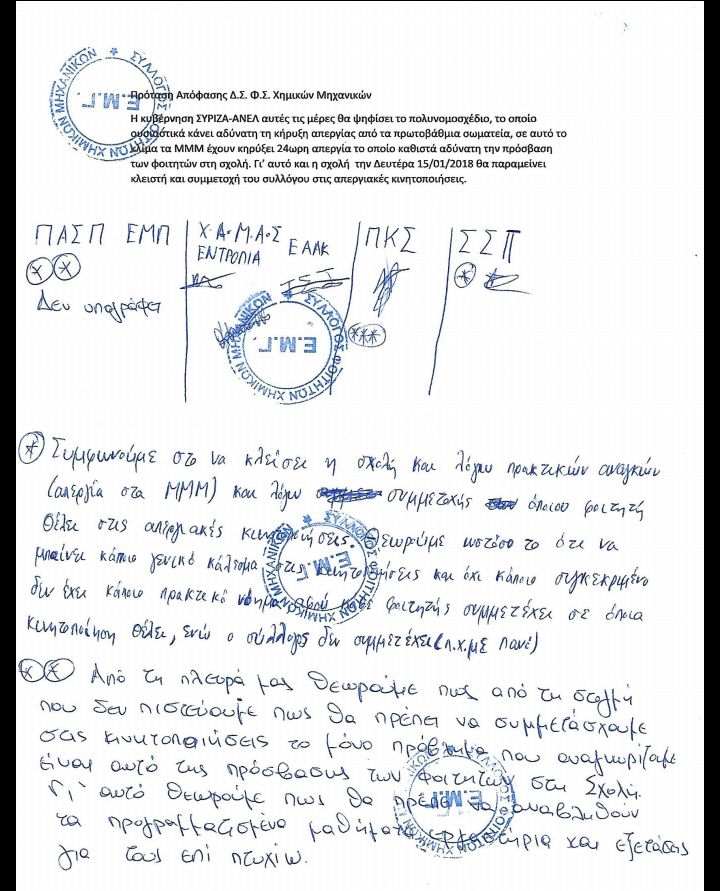 Πρόταση Απόφασης Δ.Σ. Φ.Σ. Χημικών Μηχανικών
Η κυβέρνηση ΣΥΡΙΖΑ-ΑΝΕΛ αυτές τις μέρες θα ψηφίσει το πολυνομοσχέδιο, το οποίο
ουσιαστικά κάνει αδύνατη τη κήρυξη απεργίας από τα πρωτοβάθμια σωματεία, σε αυτό το
κλίμα τα ΜΜΜ έχουν κηρύξει 24ωρη απεργία το οποίο καθιστά αδύνατη την πρόσβαση
των φοιτητών στη σχολή. Γι' αυτό και η σχολή την Δευτέρα 15/01/2018 θα παραμείνει
κλειστή και συμμετοχή του συλλόγου στις απεργιακές κινητοποιήσεις.
ΣΥΛΛΟΓΟΣ ΧΗΜΙΚΩΝ ΜΗΧΑΝΙΚΩΝ
Ε.Μ.Γ.
ΠΑΣΠ ΕΜΠ
** 
Δεν υπογράφει
Χ.Α.Μ.Α.Σ
ΕΝΤΡΟΠΙΑ ΕΑΑΚ
ΠΚΣ
***
ΣΣΠ
*
ΣΥΛΛΟΓΟΣ ΦΟΙΤΗΤΩΝ ΧΗΜΙΚΩΝ ΜΗΧΑΝΙΚΩΝ
Ε.Μ.Γ.
* Συμφωνούμε στο να κλείσει η σχολή και λόγω πρακτικών αναγκών
(απεργία στα ΜΜΜ) και λόγω συμμετοχής όποιου φοιτητή
θέλει στις απεργιακές κινητοποιήσεις. Θεωρούμε ωστόσο το ότι να
μπαίνει κάποιο γενικό κάλεσμα στις κινητοποιήσεις και όχι κάποιο συγκεκριμένο
δεν έχει κάποιο πρακτικό νόημα αφού κάθε φοιτητής συμμετέχει σε όποια
κινητοποίηση θέλει, ενώ ο σύλλογος δεν συμμετέχει (π.χ. με πανό)
Ε.Μ.Γ.
** Από τη πλευρά μας θεωρούμε πως από τη στιγμή
που δεν πιστεύουμε πως θα πρέπει να συμμετάσχουμε
στις κινητοποιήσεις το μόνο πρόβλημα που αναγνωρίζουμε
είναι αυτό της πρόσβασης των φοιτητών στη Σχολή.
Γι' αυτό θεωρούμε πως θα πρέπει να αναβληθούν
τα προγραμματισμένα μαθήματα εργαστήρια και εξετάσεις
για τους επί πτυχίω.
Ε.Μ.Γ.